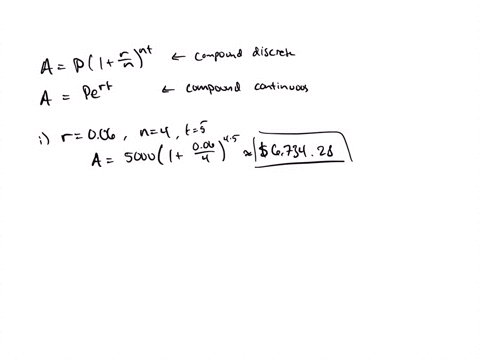 A = P(1 + r/n)^nt ← compound discrete
A = Pe^rt ← compound continuous
i) r = 0.06, n = 4, t = 5
A = 5000(1 + 0.06/4)^4·5 ≈ $6,734.28